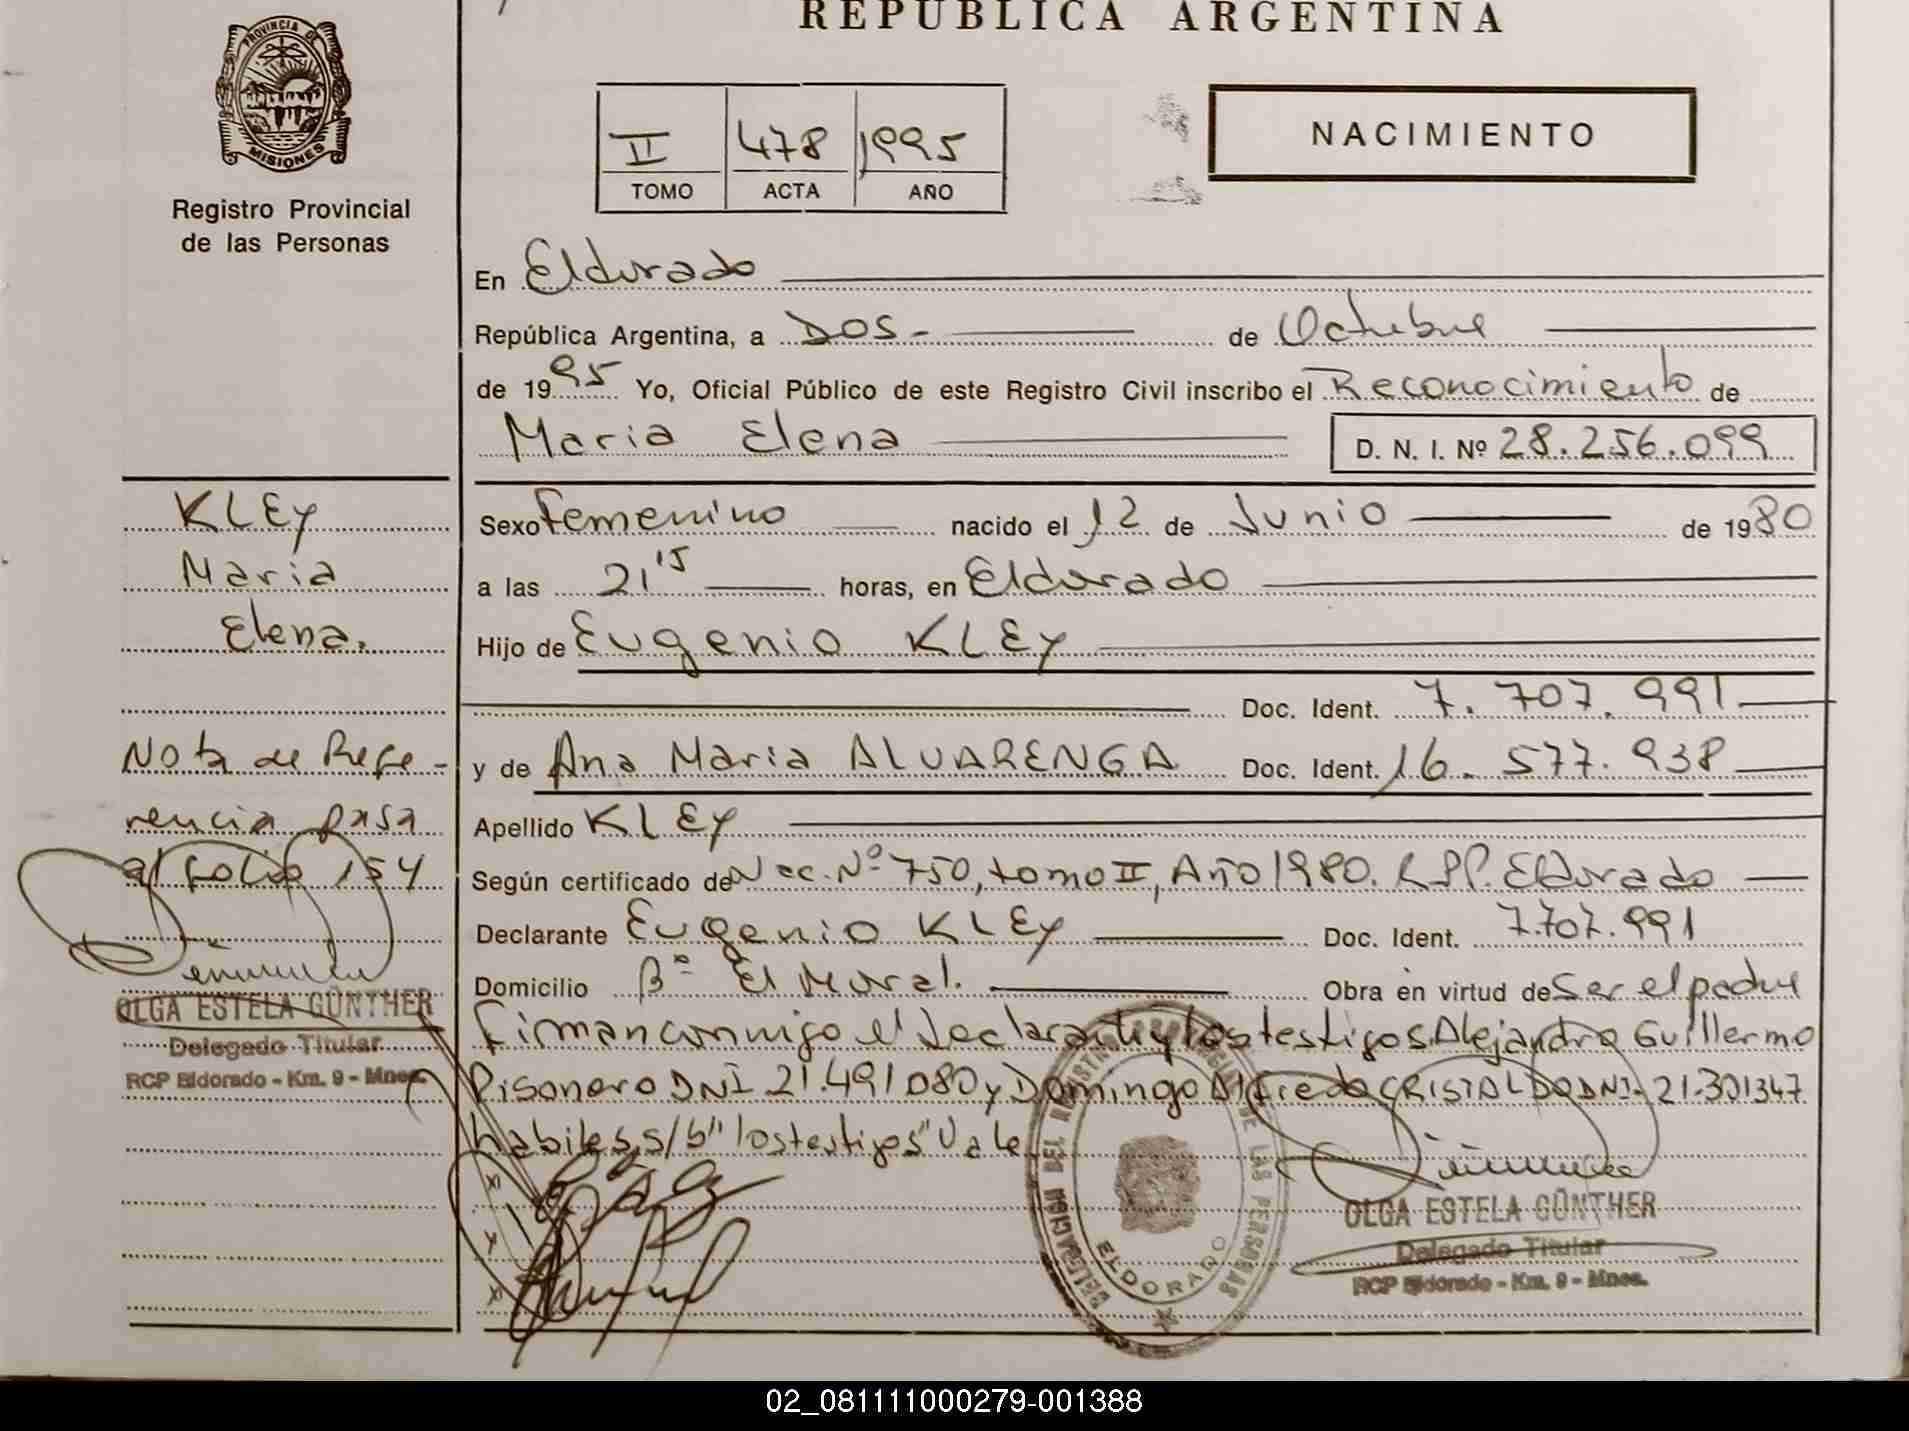 REPUBLICA ARGENTINA
PROVINCIA DE
MISIONES
Registro Provincial
de las Personas
II 478 1995
TOMO ACTA AÑO
NACIMIENTO
En Eldorado
República Argentina, a DOS- de Octubre
de 1995 Yo, Oficial Público de este Registro Civil inscribo el Reconocimiento de
Maria Elena D. N. I. Nº 28.256.099
KLEY
Maria
Elena.
Sexo Femenino nacido el 12 de Junio de 1980
a las 21 15 horas, en Eldorado
Hijo de Eugenio KLEY
Doc. Ident. 7.707.991
y de Ana Maria ALVARENGA Doc. Ident. 16.577.938
Apellido KLEY
Según certificado de Nac. Nº 750, tomo II, Año 1980. RPP. Eldorado
Declarante Eugenio KLEY Doc. Ident. 7.707.991
Domicilio Bº El Mural. Obra en virtud de Ser el padre
Firman conmigo el declarante y los testigos Alejandro Guillermo
Pisonero DNI 21.491080 y Domingo Alfredo CRISTALDO DNI- 21.301347
habiles, s/b "los testigos" Vale
Nota de Refe-
rencia pasa
al folio 154
OLGA ESTELA GÜNTHER
Delegado Titular
RCP Eldorado - Km. 9 - Mnes.
DELEGACION DEL REGISTRO PROVINCIAL DE LAS PERSONAS
ELDORADO
OLGA ESTELA GÜNTHER
Delegado Titular
RCP Eldorado - Km. 9 - Mnes.
02_081111000279-001388